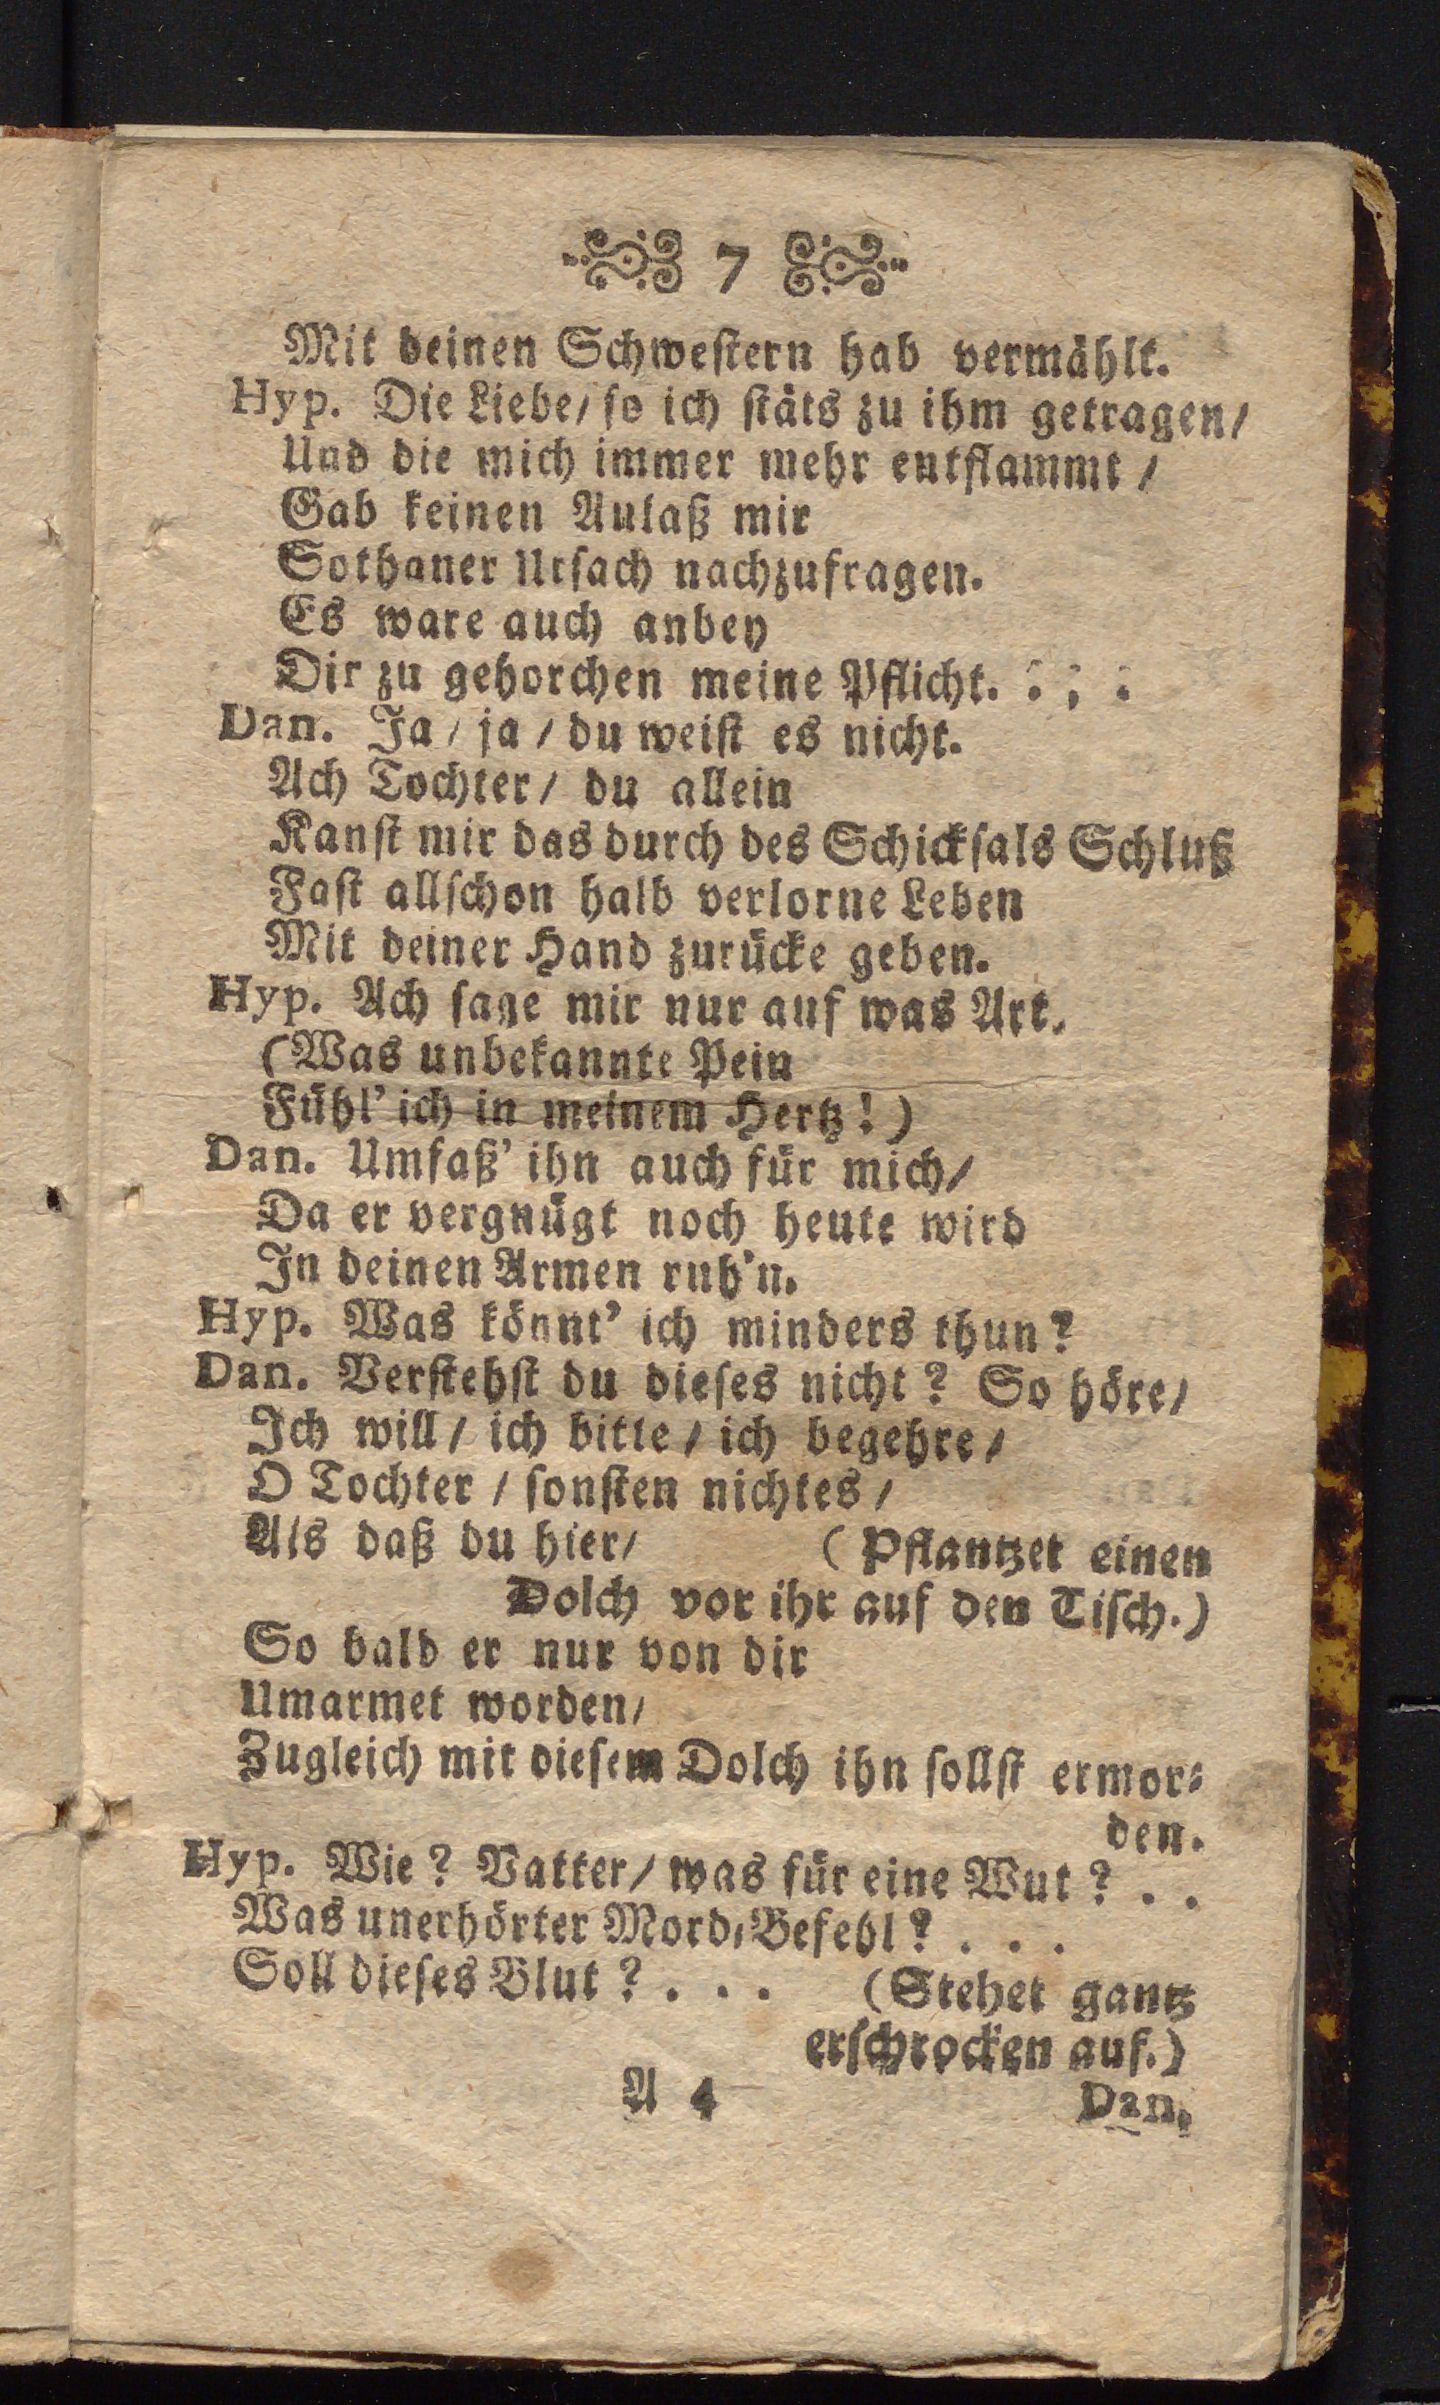 7
Mit deinen Schwestern hab vermählt.
Hyp. Die Liebe/ so ich stäts zu ihm getragen/
Und die mich immer mehr entflammt /
Gab keinen Anlaß mir
Sothaner Ursach nachzufragen.
Es ware auch anbey
Dir zu gehorchen meine Pflicht. : ; :
Dan. Ja / ja / du weist es nicht.
Ach Tochter/ du allein
Kanst mir das durch des Schicksals Schluß
Fast allschon halb verlorne Leben
Mit deiner Hand zurücke geben.
Hyp. Ach sage mir nur auf was Art.
(Was unbekannte Pein
Fühl' ich in meinem Hertz!)
Dan. Umfaß' ihn auch für mich/
Da er vergnügt noch heute wird
In deinen Armen ruh'n.
Hyp. Was könnt' ich minders thun?
Dan. Verstehst du dieses nicht? So höre/
Ich will / ich bitte / ich begehre /
O Tochter / sonsten nichtes /
Als daß du hier/ (Pflantzet einen
Dolch vor ihr auf den Tisch.)
So bald er nur von dir
Umarmet worden/
Zugleich mit diesem Dolch ihn sollst ermor-
den.
Hyp. Wie? Vatter/ was für eine Wut? . .
Was unerhörter Mord-Befehl? . . .
Soll dieses Blut? . . . (Stehet gantz
erschrocken auf.)
A 4 Dan.